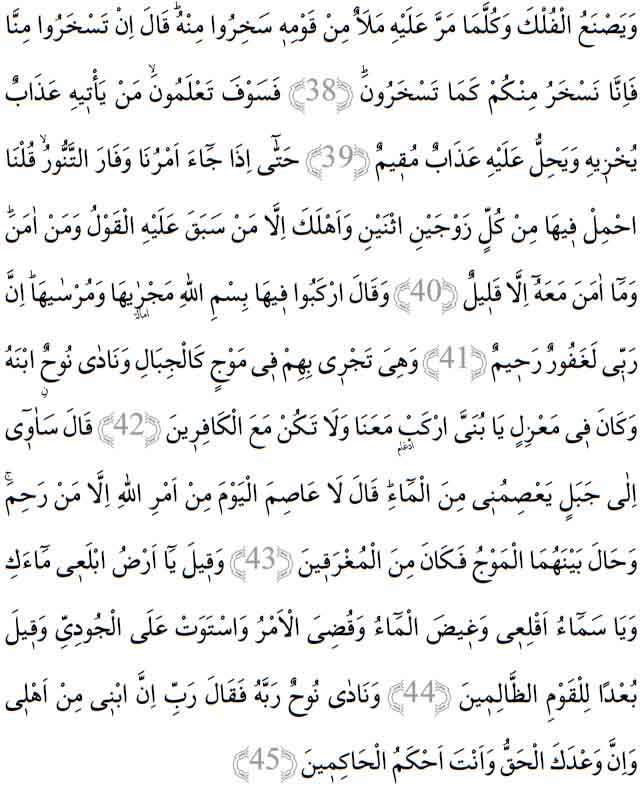 وَيَصْنَعُ الْفُلْكَ وَكُلَّمَا مَرَّ عَلَيْهِ مَلَاٌ مِنْ قَوْمِه۪ سَخِرُوا مِنْهُۜ قَالَ اِنْ تَسْخَرُوا مِنَّا
فَاِنَّا نَسْخَرُ مِنْكُمْ كَمَا تَسْخَرُونَۜ ﴿38﴾ فَسَوْفَ تَعْلَمُونَۙ مَنْ يَأْت۪يهِ عَذَابٌ
يُخْز۪يهِ وَيَحِلُّ عَلَيْهِ عَذَابٌ مُق۪يمٌ ﴿39﴾ حَتّٰٓى اِذَا جَٓاءَ اَمْرُنَا وَفَارَ التَّنُّورُۙ قُلْنَا
احْمِلْ ف۪يهَا مِنْ كُلٍّ زَوْجَيْنِ اثْنَيْنِ وَاَهْلَكَ اِلَّا مَنْ سَبَقَ عَلَيْهِ الْقَوْلُ وَمَنْ اٰمَنَۜ
وَمَٓا اٰمَنَ مَعَهُٓ اِلَّا قَل۪يلٌ ﴿40﴾ وَقَالَ ارْكَبُوا ف۪يهَا بِسْمِ اللّٰهِ مَجْرٰۭۙيهَا وَمُرْسٰيهَاۜ اِنَّ
رَبّ۪ى لَغَفُورٌ رَح۪يمٌ ﴿41﴾ وَهِىَ تَجْر۪ى بِهِمْ ف۪ى مَوْجٍ كَالْجِبَالِ وَنَادٰى نُوحٌۨ ابْنَهُ
وَكَانَ ف۪ى مَعْزِلٍ يَا بُنَىَّ ارْكَبْ مَعَنَا وَلَا تَكُنْ مَعَ الْكَافِر۪ينَ ﴿42﴾ قَالَ سَاٰو۪ٓى
اِلٰى جَبَلٍ يَعْصِمُن۪ى مِنَ الْمَٓاءِۜ قَالَ لَا عَاصِمَ الْيَوْمَ مِنْ اَمْرِ اللّٰهِ اِلَّا مَنْ رَحِمَۚ
وَحَالَ بَيْنَهُمَا الْمَوْجُ فَكَانَ مِنَ الْمُغْرَق۪ينَ ﴿43﴾ وَق۪يلَ يَٓا اَرْضُ ابْلَع۪ى مَٓاءَكِ
وَيَا سَمَٓاءُ اَقْلِع۪ى وَغ۪يضَ الْمَٓاءُ وَقُضِىَ الْاَمْرُ وَاسْتَوَتْ عَلَى الْجُودِىِّ وَق۪يلَ
بُعْدًا لِلْقَوْمِ الظَّالِم۪ينَ ﴿44﴾ وَنَادٰى نُوحٌ رَبَّهُ فَقَالَ رَبِّ اِنَّ ابْن۪ى مِنْ اَهْل۪ى
وَاِنَّ وَعْدَكَ الْحَقُّ وَاَنْتَ اَحْكَمُ الْحَاكِم۪ينَ ﴿45﴾